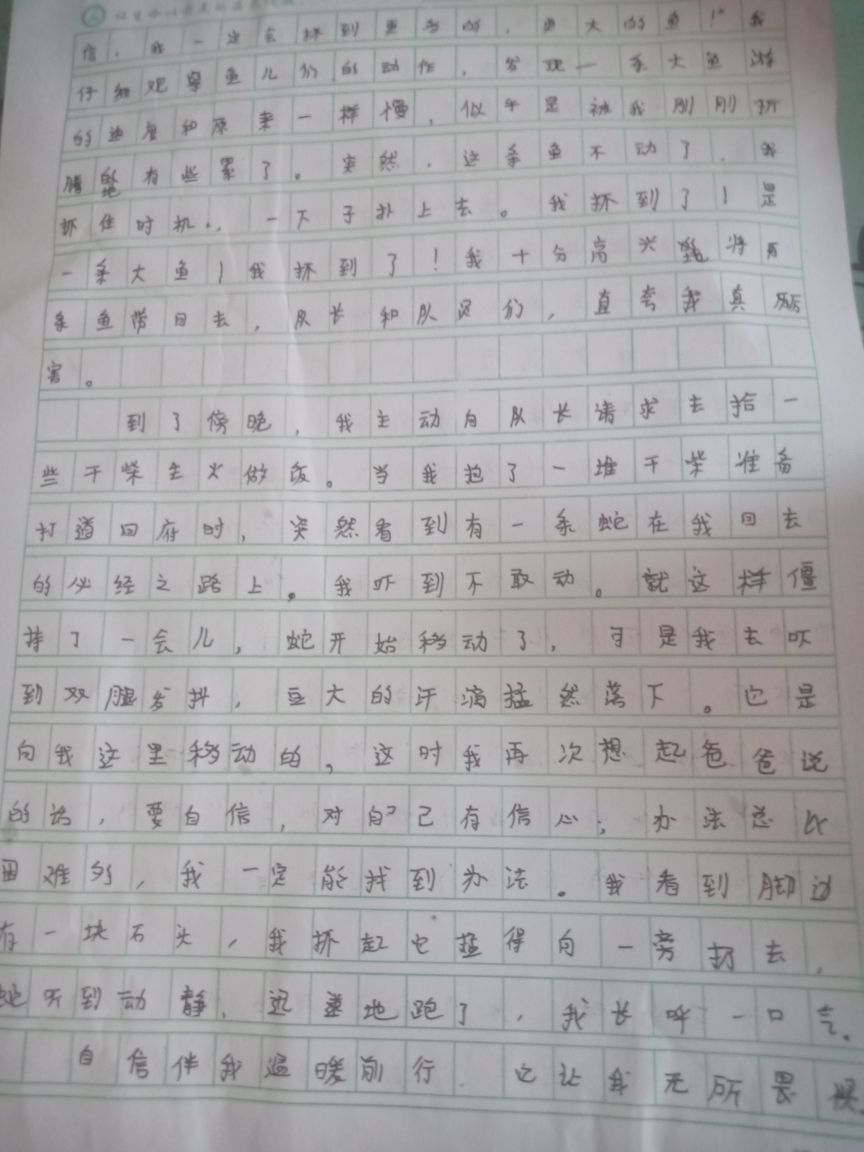 信，我一定会抓到更多的，更大的鱼！"我
仔细观察鱼儿们的动作，发现一条大鱼游
的速度和原来一样慢，似乎是被我刚刚折
腾的有些累了。突然，这条鱼不动了，我
抓住时机，一下子扑上去。我抓到了！是
一条大鱼！我抓到了！我十分高兴地将两
条鱼带回去，队长和队员们，直夸我真厉
害。
到了傍晚，我主动向队长请求去拾一
些干柴生火做饭。当我抱了一堆干柴准备
打道回府时，突然看到有一条蛇在我回去
的必经之路上。我吓到不敢动。就这样僵
持了一会儿，蛇开始移动了，可是我去吓
到双腿发抖，豆大的汗滴猛然落下。它是
向我这里移动的，这时我再次想起爸爸说
的话，要自信，对自己有信心；办法总比
困难多，我一定能找到办法。我看到脚边
有一块石头，我抓起它猛得向一旁扔去，
蛇听到动静，迅速地跑了，我长呼一口气。
自信伴我温暖前行，它让我无所畏惧。